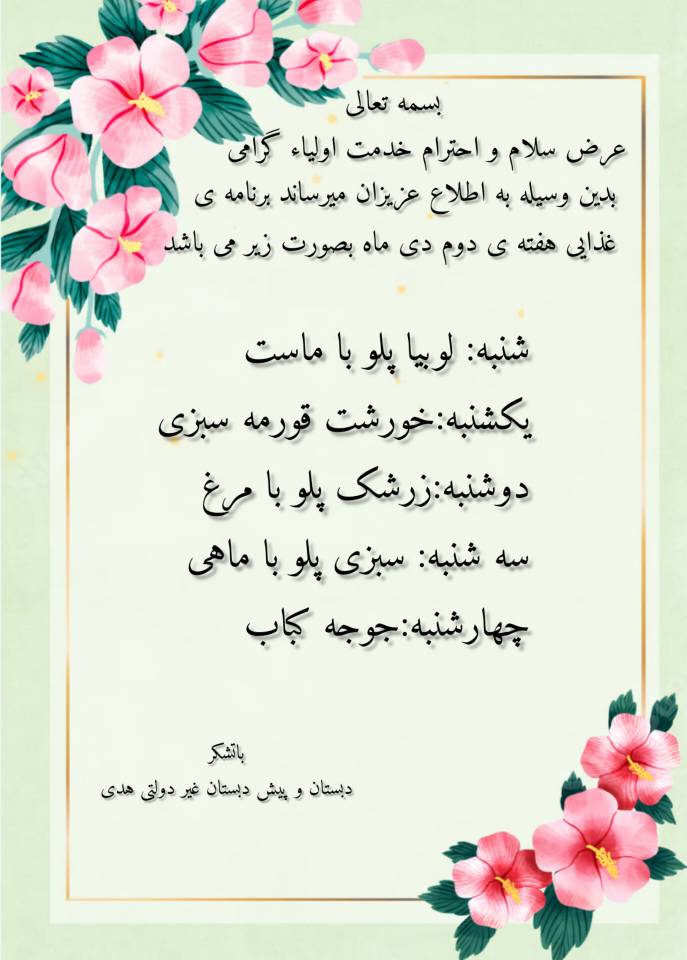 بسمه تعالی
عرض سلام و احترام خدمت اولیاء گرامی
بدین وسیله به اطلاع عزیزان میرساند برنامه ی
غذایی هفته ی دوم دی ماه بصورت زیر می باشد
شنبه: لوبیا پلو با ماست
یکشنبه:خورشت قورمه سبزی
دوشنبه:زرشک پلو با مرغ
سه شنبه: سبزی پلو با ماهی
چهارشنبه:جوجه کباب
باتشکر
دبستان و پیش دبستان غیر دولتی هدی